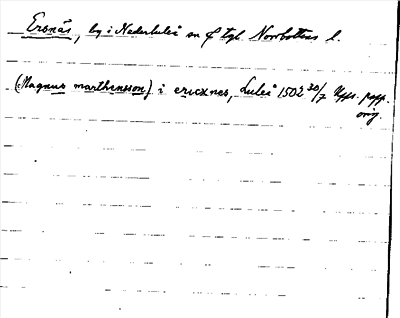 Ersnäs, by i Nederluleå sn o tgl. Norrbottens l.
(Magnus marthinsson) i ericxnes, Luleå 1502 30/7 Upps. papp.
orig.